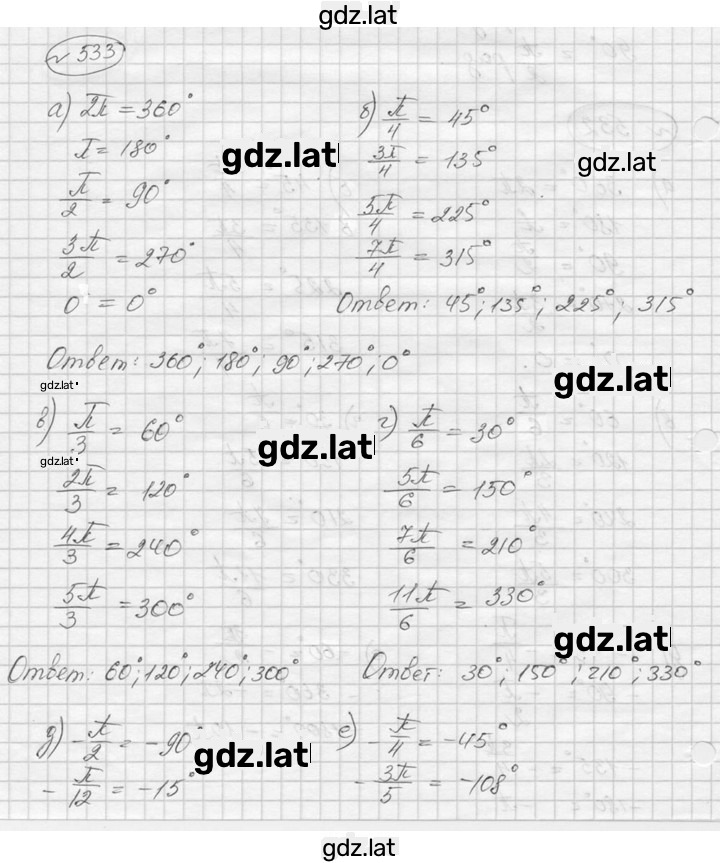 gdz.lat
№ 533
а) 2π = 360°
π = 180°
π/2 = 90°
3π/2 = 270°
0 = 0°
б) π/4 = 45°
3π/4 = 135°
5π/4 = 225°
7π/4 = 315°
Ответ: 45°; 135°; 225°; 315°
gdz.lat
gdz.lat
Ответ: 360°; 180°; 90°; 270°; 0°
gdz.lat
gdz.lat
в) π/3 = 60°
2π/3 = 120°
4π/3 = 240°
5π/3 = 300°
gdz.lat
gdz.lat
г) π/6 = 30°
5π/6 = 150°
7π/6 = 210°
11π/6 = 330°
gdz.lat
Ответ: 60°; 120°; 240°; 300°
Ответ: 30°; 150°; 210°; 330°
д) -π/2 = -90°
-π/12 = -15°
gdz.lat
е) -π/4 = -45°
-3π/5 = -108°
gdz.lat